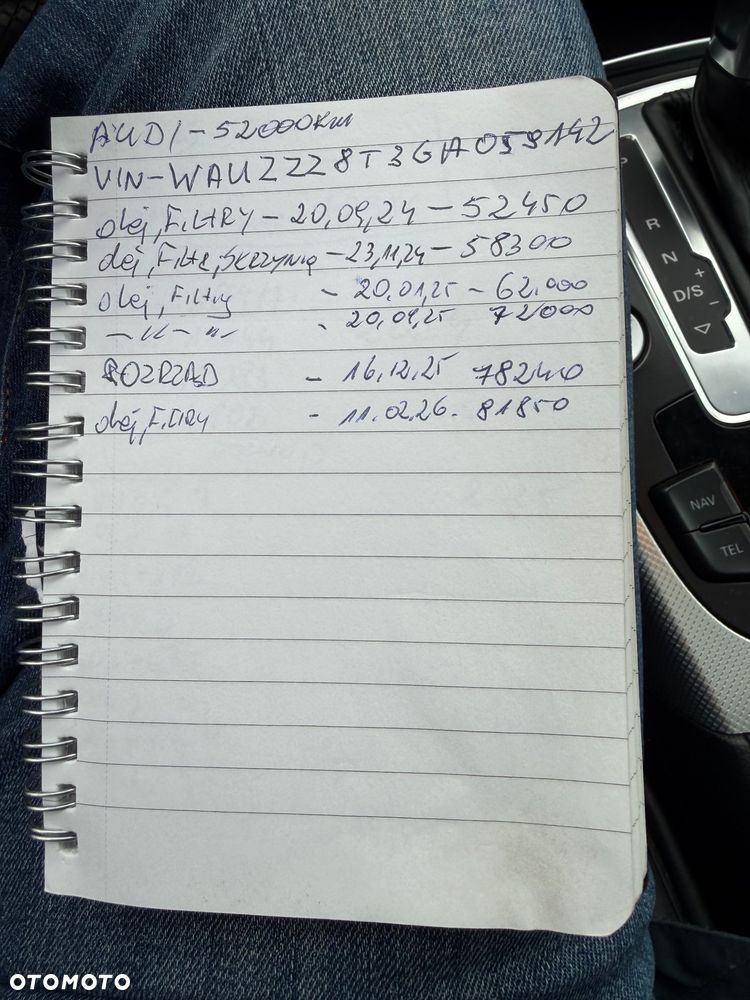 AUDI - 52000km
VIN - WAUZZZ8T3GA059142
olej, FILTRY - 20,09,24 - 52450
olej, Filtr, skrzynia - 23,11,24 - 58300
olej, Filtry - 20.01.25 - 62.000
-"- "- - 20,09.25 72000
ROZRZĄD - 16,12.25 78240
olej, FILTRY - 11.02.26. 81850
P
R
N
D/S
+
-
NAV
TEL
OTOMOTO